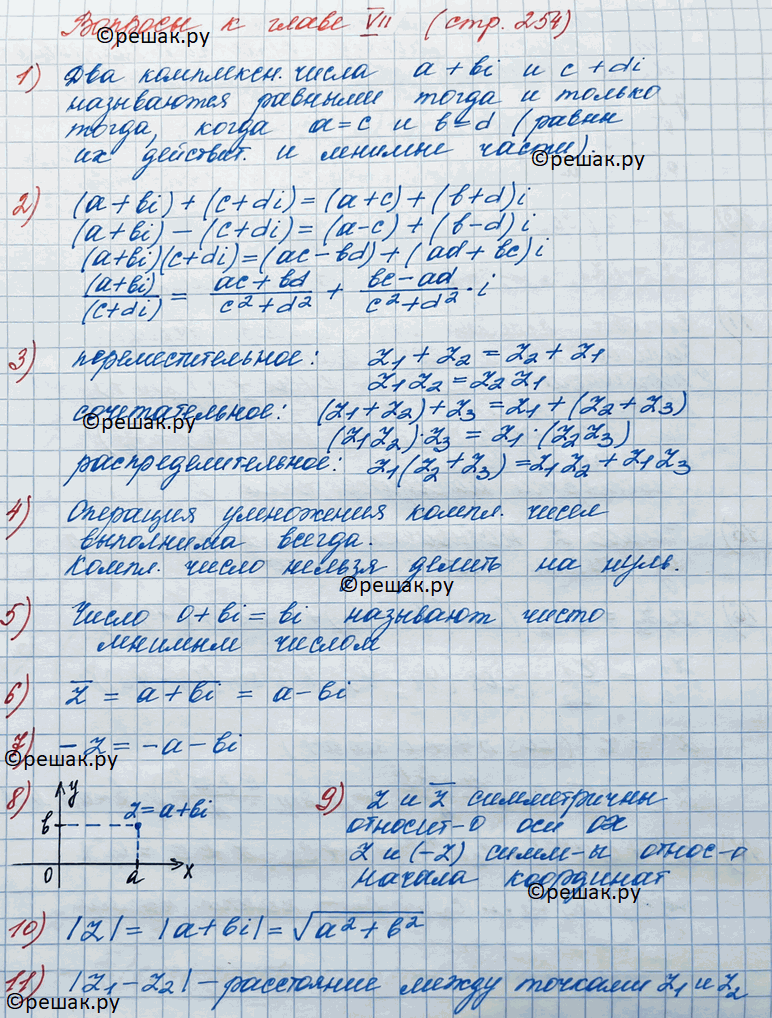 Вопросы к главе VII (стр. 254)
©решак.ру
1) Два комплексн. числа a + bi и c + di
называются равными тогда и только
тогда, когда a = c и b = d (равны
их действит. и мнимые части).
©решак.ру
2) (a + bi) + (c + di) = (a+c) + (b+d)i
(a + bi) − (c + di) = (a-c) + (b-d)i
(a+bi)(c+di) = (ac − bd) + (ad + bc)i
(a+bi)/(c+di) = (ac + bd)/(c² + d²) + (bc − ad)/(c² + d²) · i
3) переместительное: z₁ + z₂ = z₂ + z₁
z₁ z₂ = z₂ z₁
сочетательное: (z₁ + z₂) + z₃ = z₁ + (z₂ + z₃)
©решак.ру
(z₁ z₂) · z₃ = z₁ · (z₂ z₃)
распределительное: z₁ (z₂ + z₃) = z₁ z₂ + z₁ z₃
4) Операция умножения компл. чисел
выполнима всегда.
Компл. число нельзя делить на нуль.
©решак.ру
5) Число 0 + bi = bi называют чисто
мнимым числом
6) z̅ = a̅ ̅+̅ ̅b̅i̅ = a − bi
7) − z = − a − bi
©решак.ру
8) y
z = a + bi
b
0 a x
9) z и z̅ симметричны
относит-о оси OX
z и (−z) симм-ы относ-о
начала координат
©решак.ру
10) |z| = |a + bi| = √(a² + b²)
11) |z₁ − z₂| − расстояние между точками z₁ и z₂
©решак.ру